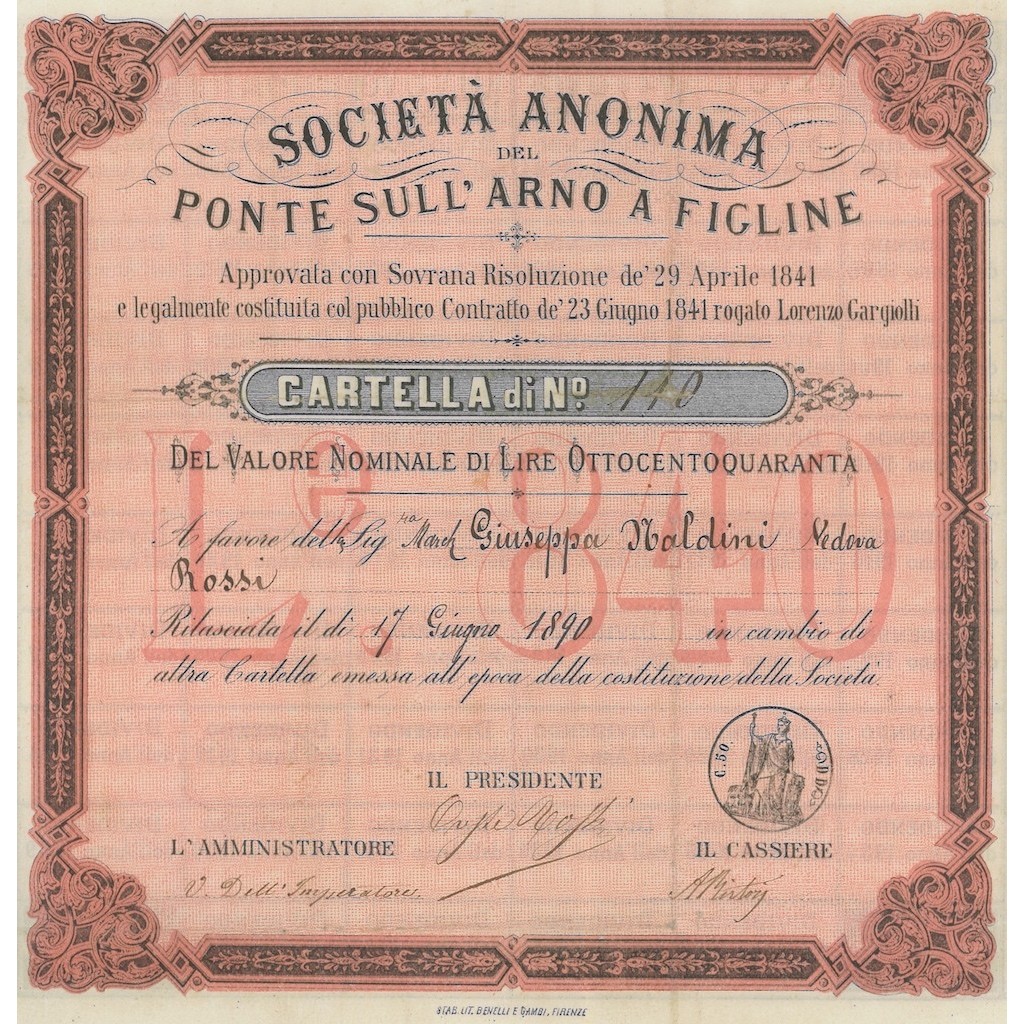 SOCIETÀ ANONIMA
DEL
PONTE SULL' ARNO A FIGLINE
Approvata con Sovrana Risoluzione de' 29 Aprile 1841
e legalmente costituita col pubblico Contratto de' 23 Giugno 1841 rogato Lorenzo Gargiolli
CARTELLA di Nº. 140
DEL VALORE NOMINALE DI LIRE OTTOCENTOQUARANTA
Lᵉ 840
A favore della Sig.ra March Giuseppa Naldini Vedova
Rossi
Rilasciata il dì 17 Giugno 1890 in cambio di
altra Cartella emessa all' epoca della costituzione della Società.
C. 50.
IL PRESIDENTE
L'AMMINISTRATORE
IL CASSIERE
V. Dell' Imperatore
STAB. LIT. BENELLI E GAMBI, FIRENZE